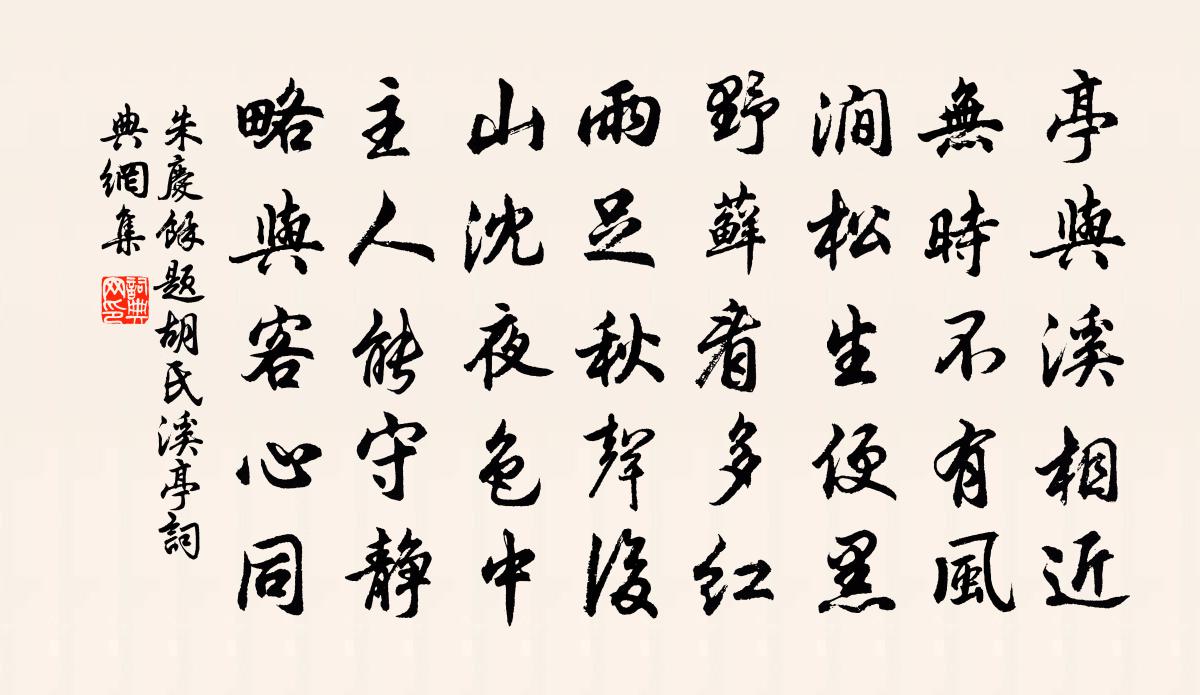 亭與溪相近
無時不有風
澗松生便黑
野蘚看多紅
雨足秋聲後
山沈夜色中
主人能守静
略與客心同
朱慶餘題胡氏溪亭詞
典網集
詞典
网印